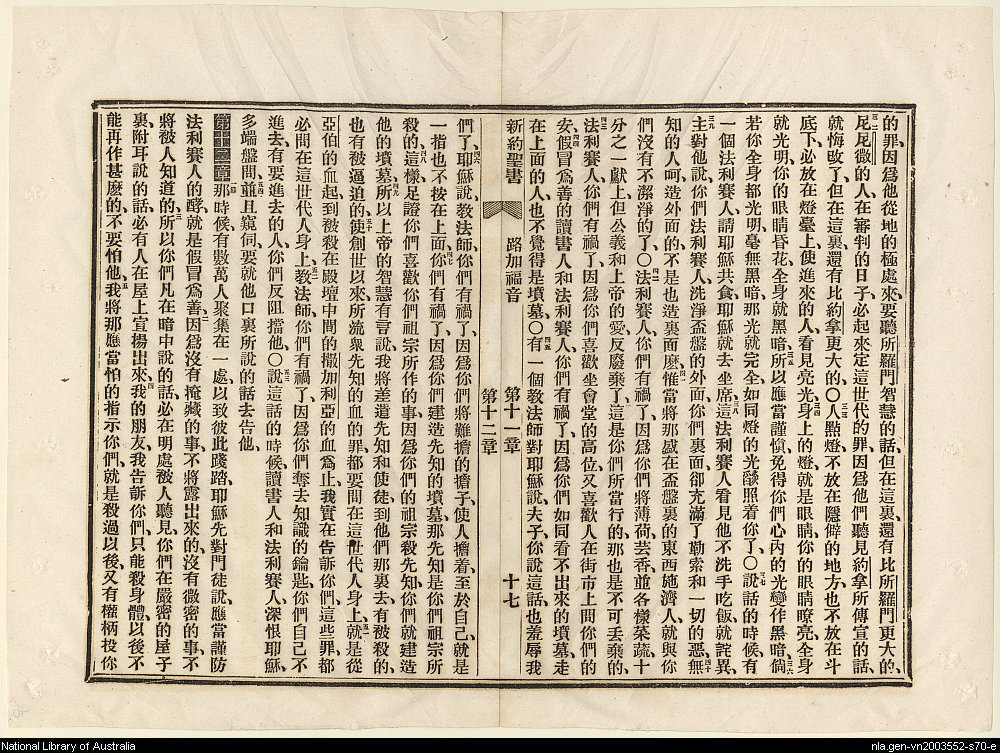 的罪、因爲他從地的極處來、要聽所羅門智慧的話、但在這裏還有比所羅門更大的、
三二尼尼微的人、在審判的日子、必起來定這世代的罪、因爲他們聽見約拿所傳宣的話、
就悔改了、但在這裏還有比約拿更大的、〇三三人點燈、不放在隱僻的地方、也不放在斗
底下、必放在燈臺上、使進來的人、看見亮光、三四身上的燈、就是眼睛、你的眼睛瞭亮、全身
就光明、你的眼睛昏花、全身就黑暗、三五所以應當謹慎、免得你們心內的光、變作黑暗、三六倘
若你全身都光明、毫無黑暗、那光就完全、如同燈的光、發照着你了、〇三七說話的時候、有
一個法利賽人、請耶穌共食、耶穌就去坐席、三八這法利賽人看見他不洗手吃飯、就詫異、
三九主對他說、你們法利賽人、洗淨盃盤的外面、你們裏面、卻充滿了勒索和一切的惡、四十無
知的人呵、造外面的、不是也造裏面麽、四一惟當將那盛在盃盤裏的東西、施濟人、就與你
們沒有不潔淨的了、〇四二法利賽人、你們有禍了、因爲你們將薄荷、芸香、並各樣菜蔬、十
分之一獻上、但公義和上帝的愛、反廢棄了、這是你們所當行的、那也是不可丟棄的、
四三法利賽人、你們有禍了、因爲你們喜歡坐會堂的高位、又喜歡人在街市上問你們的
安、四四假冒爲善的讀書人和法利賽人、你們有禍了、因爲你們如同看不出來的墳墓、走
在上面的人、也不覺得是墳墓、〇四五有一個教法師對耶穌說、夫子、你說這話、也羞辱我
新約聖書 路加福音 第十一章 十七
第十二章
們了、四六耶穌說、教法師、你們有禍了、因爲你們將難擔的擔子、使人擔着、至於自己、就是
一指也不按在上面、四七你們有禍了、因爲你們建造先知的墳墓、那先知是你們祖宗所
殺的、四八這樣、足證你們喜歡你們祖宗所作的事、因爲你們的祖宗殺先知、你們就建造
他的墳墓、四九所以上帝的智慧有言說、我將差遣先知和使徒到他們那裏去、有被殺的、
也有被逼迫的、五十使創世以來、所流衆先知的血的罪、都要問在這世代人身上、五一就是從
亞伯的血起、到被殺在殿壇中間的撒加利亞的血爲止、我實在告訴你們、這些罪都
必問在這世代人身上、五二教法師、你們有禍了、因爲你們奪去知識的鑰匙、你們自己不
進去、有要進去的人、你們反阻擋他、〇五三說這話的時候、讀書人和法利賽人、深恨耶穌、
多端盤問、五四並且窺伺、要就他口裏所說的話去告他、
第十二章一節那時候、有數萬人聚集在一處、以致彼此踐踏、耶穌先對門徒說、應當謹防
法利賽人的酵、就是假冒爲善、二因爲沒有掩藏的事、不將露出來的、沒有微密的事、不
將被人知道的、三所以你們凡在暗中說的話、必在明處被人聽見、你們在嚴密的屋子
裏附耳說的話、必有人在屋上宣揚出來、四我的朋友、我告訴你們、只能殺身體、以後不
能再作甚麽的、不要怕他、五我將那應當怕的指示你們、就是殺過以後、又有權柄投你
National Library of Australia
nla.gen-vn2003552-s70-e